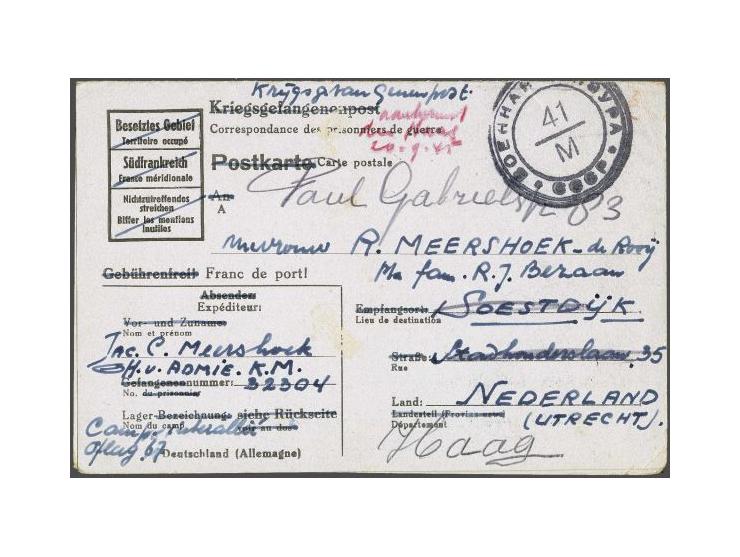 Krijgsgevangenenpost.
Kriegsgefangenenpost
Correspondance des prisonniers de guerre
20-9-45
Postkarte Carte postale
Besetztes Gebiet
Territoire occupé
Südfrankreich
France méridionale
Nichtzutreffendes
streichen
Biffer les mentions
inutiles
ВОЕННАЯ ЦЕНЗУРА
41
М
СССР
Paul Gabriëlstr 83
An
A
Mevrouw R. MEERSHOEK-de Rooij
p/a fam. R.J. Bezaan
Gebührenfrei! Franc de port!
Absender:
Expéditeur:
Vor- und Zuname:
Nom et prénom
Jac. C. Meershoek
OH.v. ADMIE. K.M.
Gefangenennummer: 32304
No. du prisonnier
Lager-Bezeichnung: siehe Rückseite
Nom du camp voir au dos
Camp
Oflag 67 Deutschland (Allemagne)
Empfangsort: SOESTDIJK
Lieu de destination
Straße: Stadhouderslaan 35
Rue
Land: NEDERLAND
Landesteil (Provinz usw.) (UTRECHT).
Département
Haag